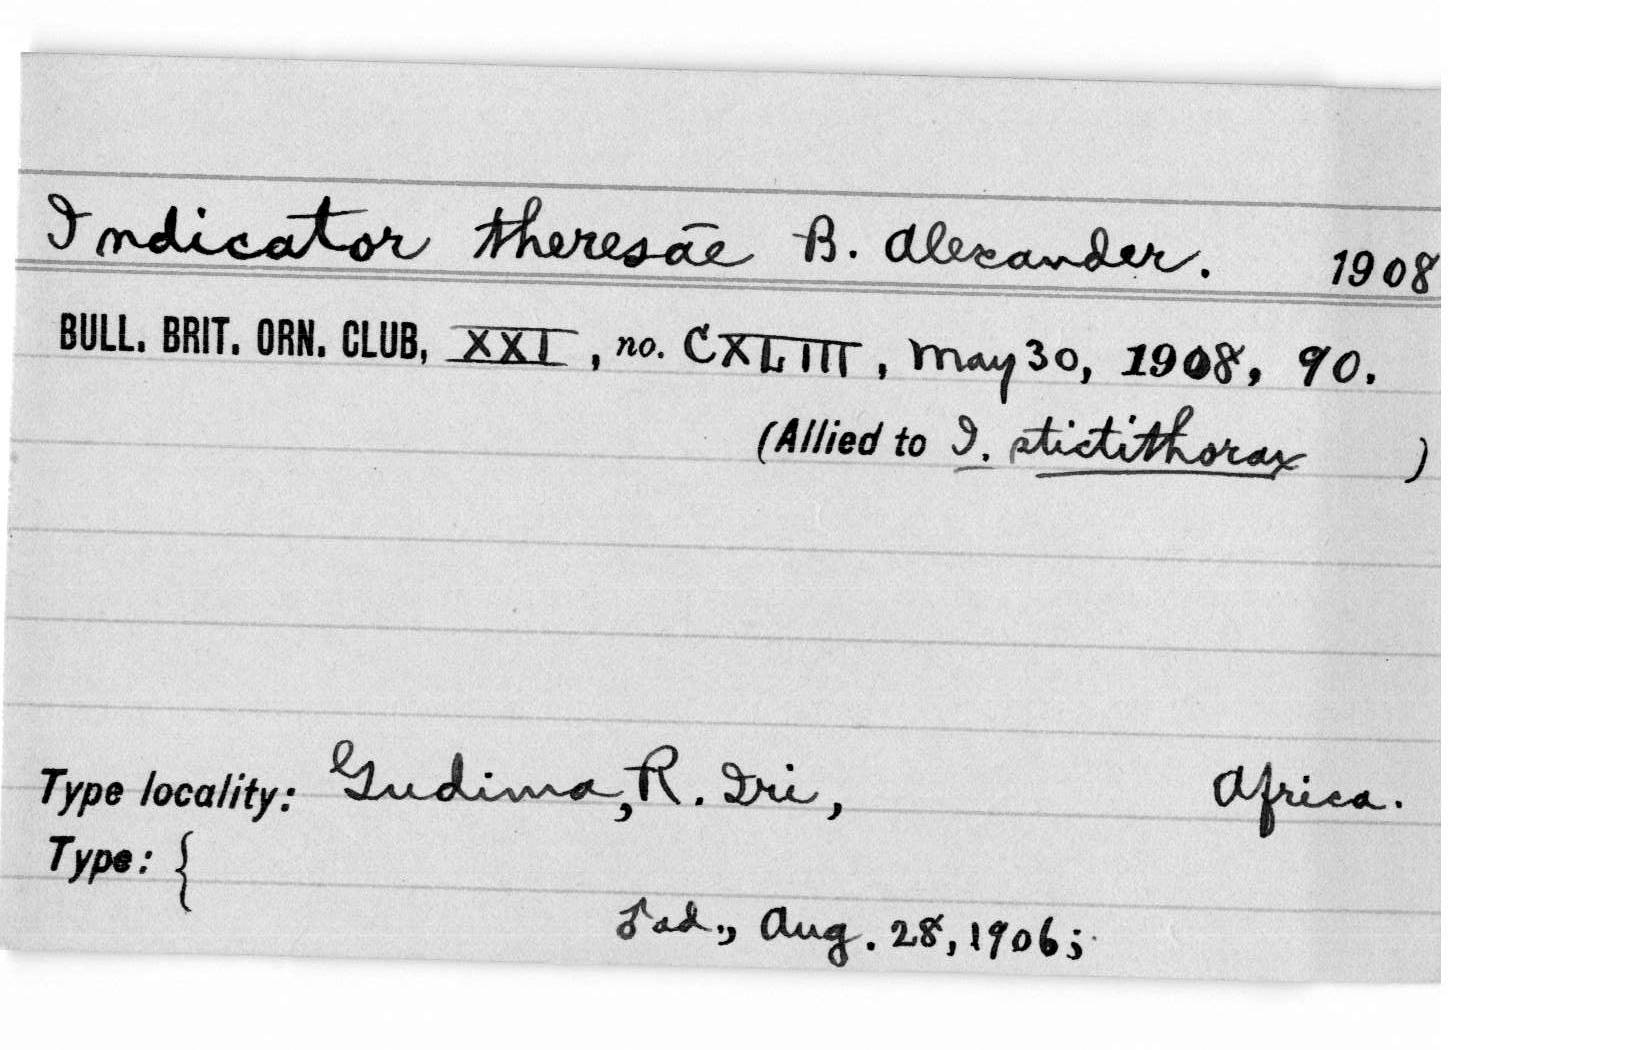 Indicator theresae B. Alexander. 1908
BULL. BRIT. ORN. CLUB, XXI, no. CXLIII, May 30, 1908, 90.
(Allied to I. stictithorax )
Type locality: Gudima, R. Iri, Africa.
Type: {
♂ ad., Aug. 28, 1906;